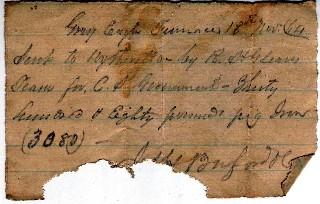 Grey Eagle Furnace 18th Nov. 64
Sent to Washington by R. H. Glenns
Team for C. S. Government - Thirty
hundred & Eighty pounds pig Iron
(3080)
Buford & Co